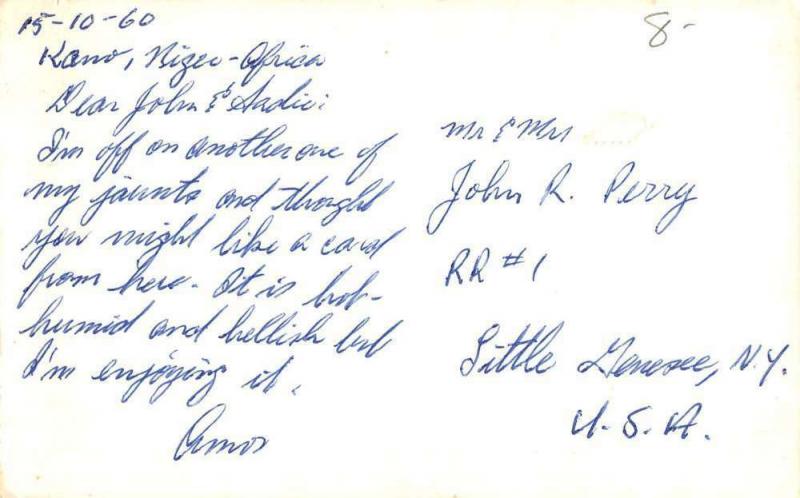 15-10-60
Kano, Niger-Africa
Dear John & Sadie:
I'm off on another one of
my jaunts and thought
you might like a card
from here. It is hot-
humid and hellish but
I'm enjoying it.
Amos
8-
Mr & Mrs
John R. Perry
RR #1
Little Genesee, N.Y.
U.S.A.